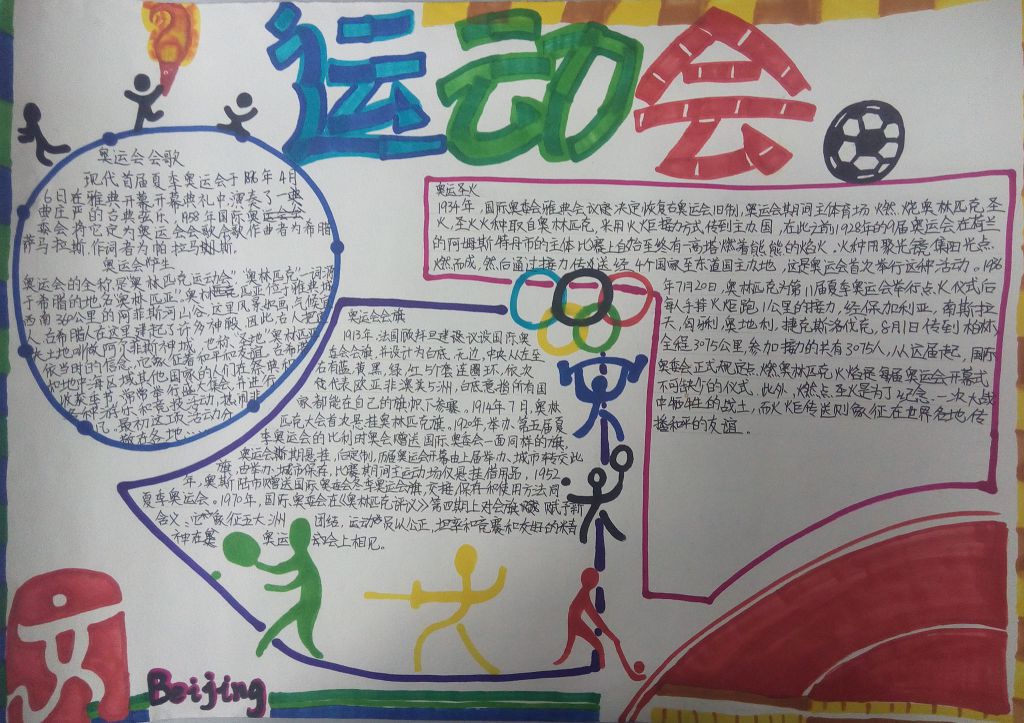 运动会
奥运会会歌
现代首届夏季奥运会于1896年4月
6日在雅典开幕开幕典礼中演奏了一典
曲庄严的古典弦乐.1958年国际奥运会
委会将它定为奥运会会歌会歌作曲者为希腊
萨马拉斯.作词者为帕拉马斯.
奥运会
奥运会的全称是奥林匹克运动会"奥林匹克"一词源
于希腊的地名奥林匹亚"奥林匹克匹亚位于雅典城
西南360公里的阿菲斯河山谷,这里风景如画,气候宜
人.古希腊人在这里建起了许多神殿.因此,古人把这
依当时的信念,它象征着和平和友谊,古希腊
和地中海区域其他国家的人们在祭典和
收获季节,常常举行盛大集会,并进行
各种游乐和竞技活动,热闹非
凡.最初这项活动分
散在各地
奥运会会旗
1913年.法国顾拜旦建议设国际奥
委会会旗,并设计为白底.无边.中央从左至
右有蓝.黄.黑.绿.红5个套连圆环.依次
代表欧亚非澳美5洲,白底意指所有国
家都能在自己的旗帜下参赛.1914年7月,奥林
匹克大会首次悬挂奥林匹克旗.1920年,举办第五届夏
季奥运会的比利时奥会赠送国际奥委会一面同样的旗,
奥运会斯期悬挂,后定制,历届奥运会开幕由上届举办城市转交此
旗,由举办城市保存,比赛期间主运动场仅悬挂借用品,1952
年,奥斯陆市赠送国际奥委会冬季奥运会旗,交接.保存和使用方法同
夏季奥运会。1970年,国际奥委会在《奥林匹克评议》第四期上对会旗赋予新
含义:它象征五大洲 团结,运动员以公正,坦率和竞赛和友好的精
神在 奥运 动会上相见。
奥运圣火
1934年,国际奥委会雅典会议决定恢复古奥运会旧制,奥运会期间主体育场燃烧奥林匹克圣
火,圣火火种取自奥林匹克,采用火炬接力方式传到主办国,在此之前1928年的9届奥运会在荷兰
的阿姆斯特丹市的主体比赛上自始至终有一高塔燃着熊熊的焰火.火种用聚光镜集阳光点
燃而成,然后通过接力传送经4个国家至东道国主办地,这是奥运会首次举行这种活动。1936
年7月20日,奥林匹克为第11届夏季奥运会举行点火仪式后
每人手持火炬跑1公里的接力,经保加利亚,南斯拉
夫,匈牙利.奥地利.捷克斯洛伐克,8月1日传到柏林
全程3075公里,参加接力的共有3075人,从这届起,国际
奥委会正式规定点燃奥林匹克火焰是每届奥运会开幕式
不可缺少的仪式。此外,燃点圣火是为了纪念一次大战
中牺牲的战士,而火炬传送则象征在世界各地传
播和平的友谊。
Beijing